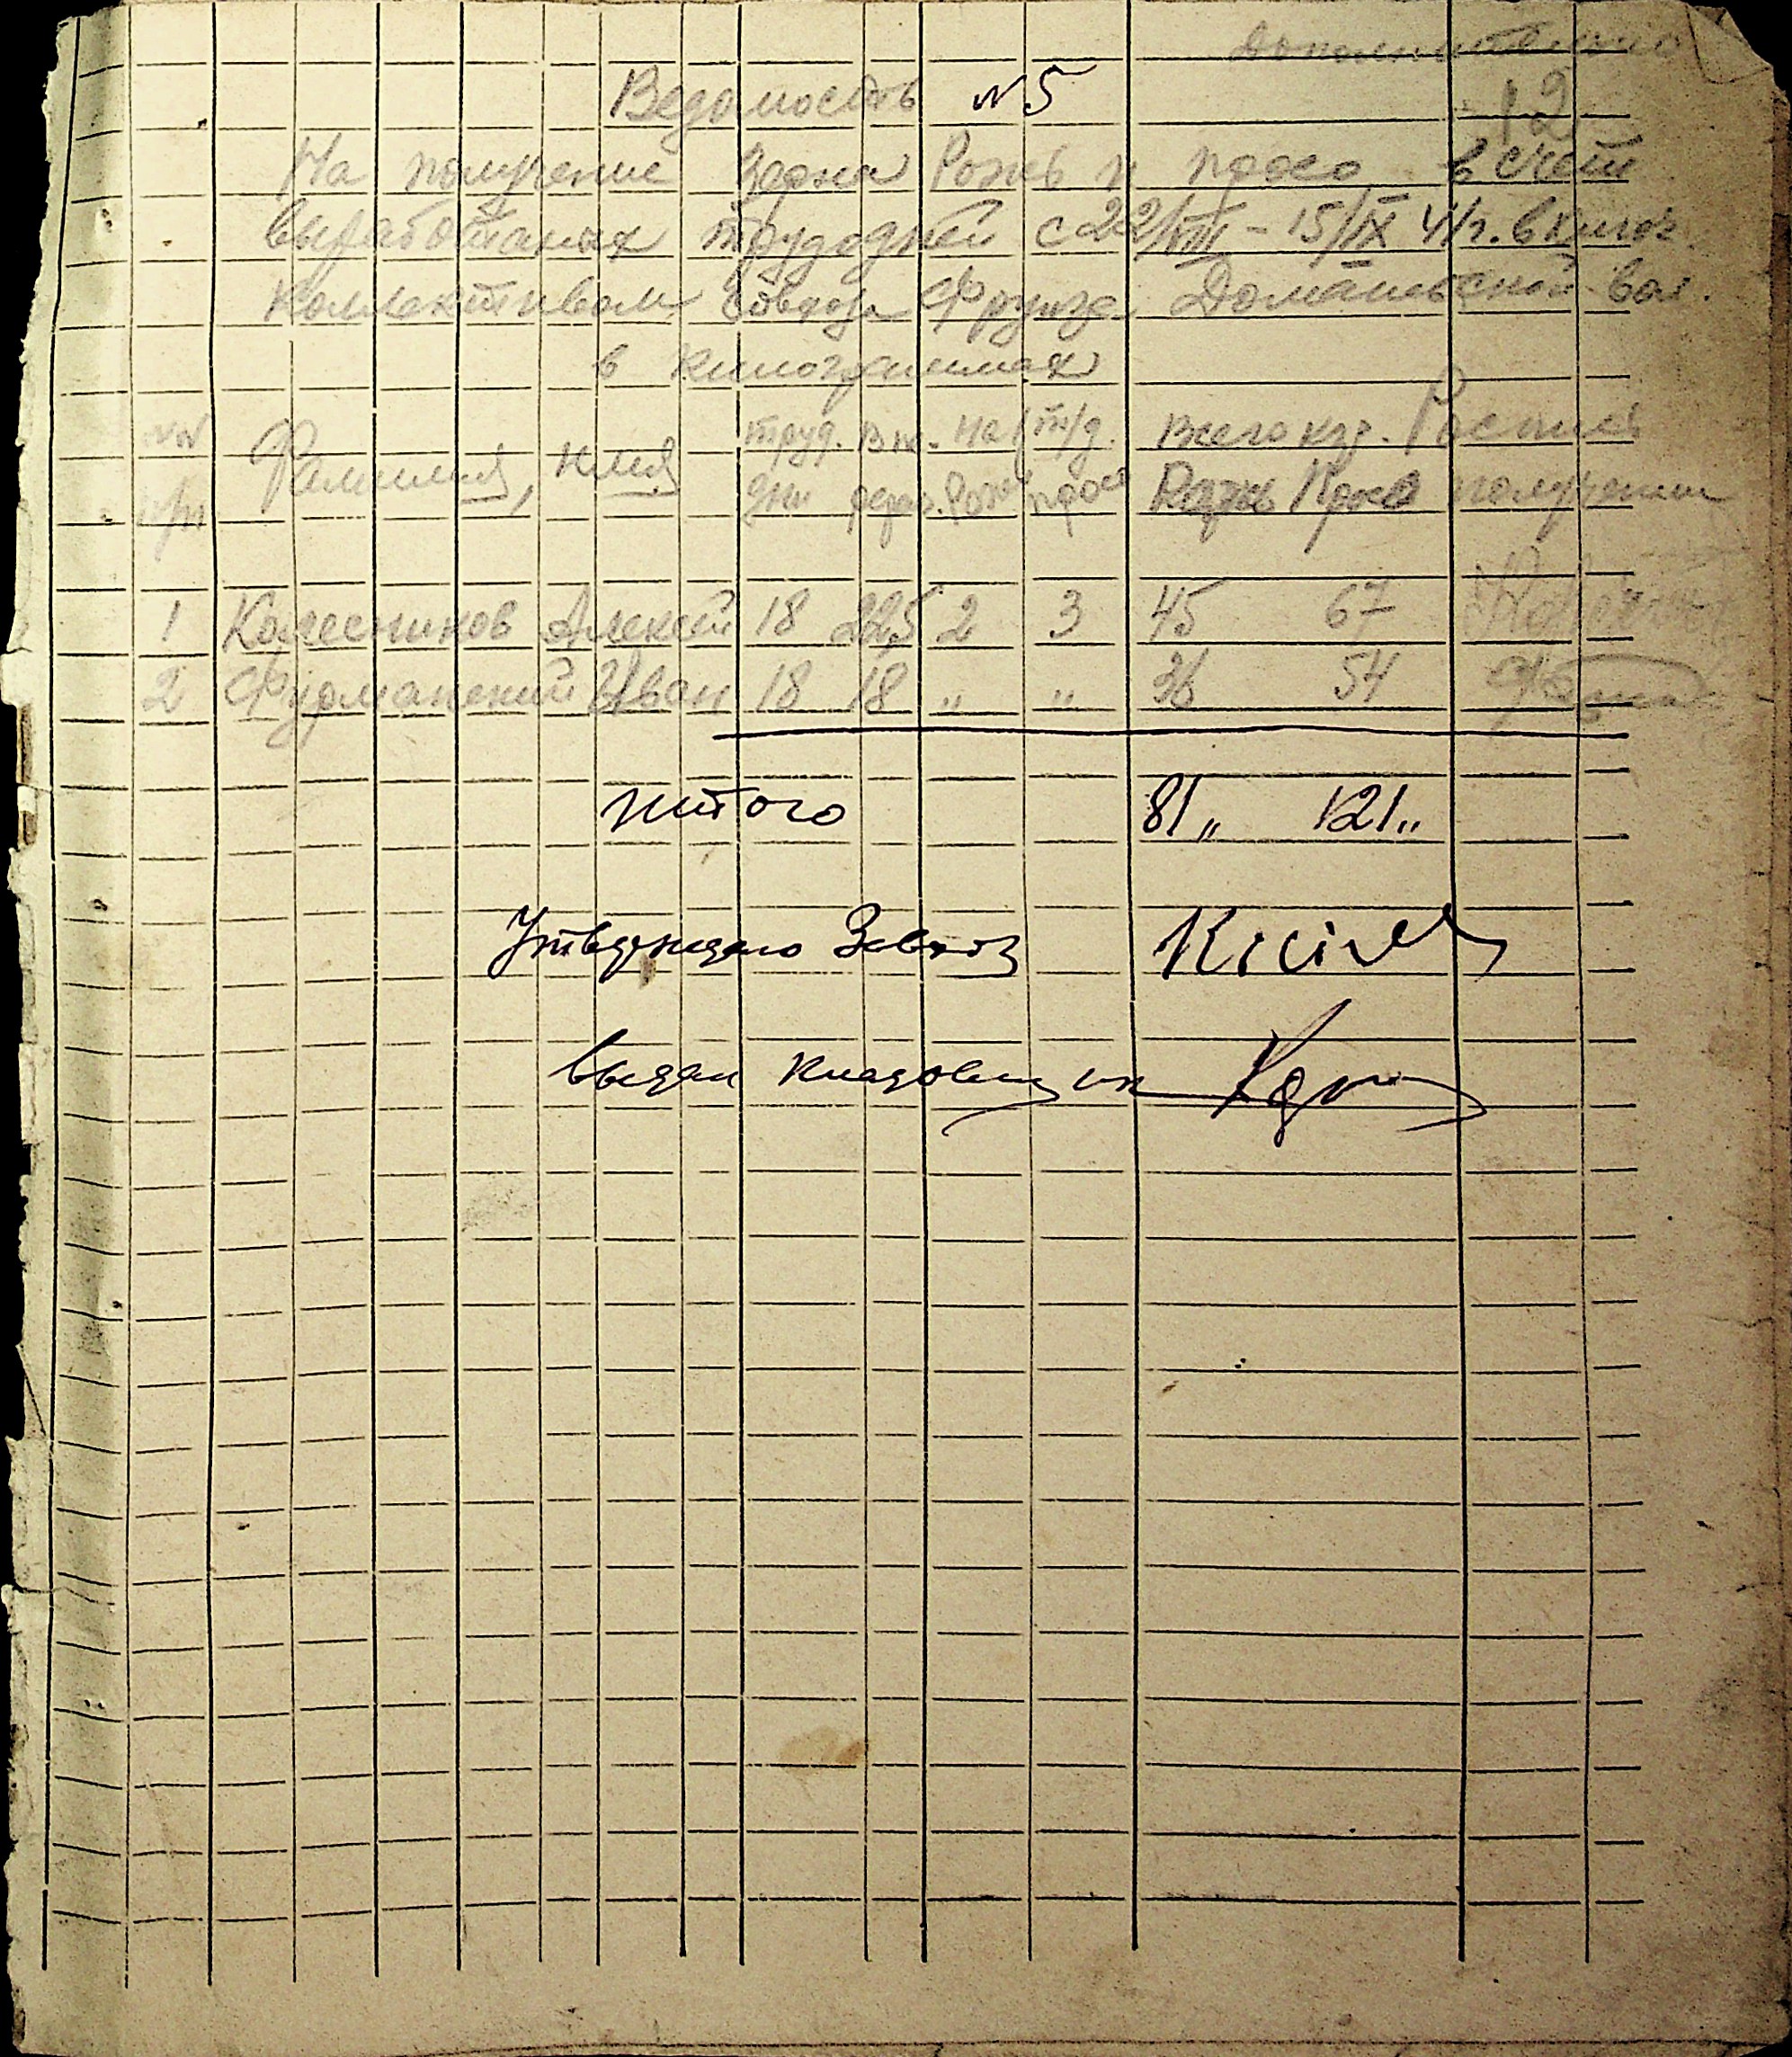 Дополнительно
Ведомость №5
12
На получение Зерна Рожь и просо в счет
выработаных трудодней с 22/VIII - 15/IX 41г. включ.
коллективом Совхоза Фрунзе Доманевской вол.
в килограммах
NN Фамилия, имя труд. Вк. На 1 т/д. Всего кгр. Роспись
п/п дни Рожь просо Рожь Просо получении
1 Колесников Алексей 18 22,5 2 3 45 67
2 Фурманский Иван 18 18 „ „ 36 54
Итого 81„ 121„
Утверждаю Завхоз
Выдал кладовщик